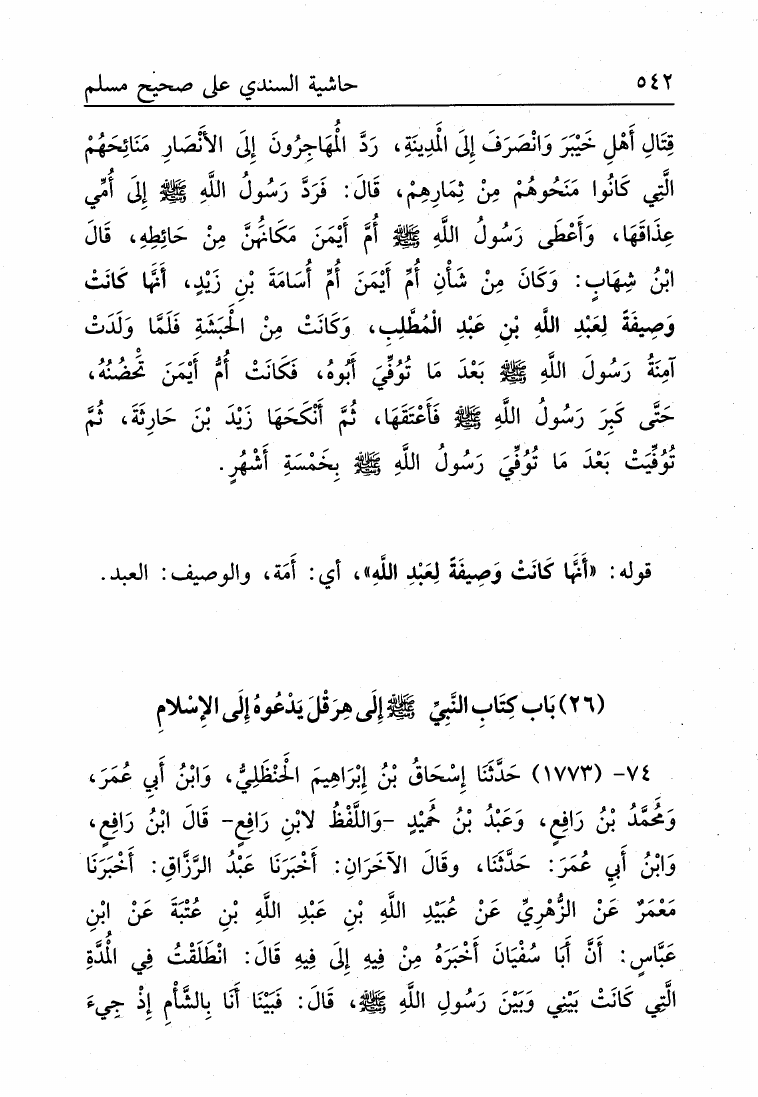 ٥٤٢ حاشية السندي على صحيح مسلم
قِتَالِ أَهْلِ خَيْبَرَ وَانْصَرَفَ إِلَى الْمَدِينَةِ، رَدَّ الْمُهَاجِرُونَ إِلَى الأَنْصَارِ مَنَائِحَهُمُ
الَّتِي كَانُوا مَنَحُوهُمْ مِنْ ثِمَارِهِمْ، قَالَ: فَرَدَّ رَسُولُ اللَّهِ ﷺ إِلَى أُمِّي
عِذَاقَهَا، وَأَعْطَى رَسُولُ اللَّهِ ﷺ أُمَّ أَيْمَنَ مَكَانَهُنَّ مِنْ حَائِطِهِ، قَالَ
ابْنُ شِهَابٍ: وَكَانَ مِنْ شَأْنِ أُمِّ أَيْمَنَ أُمِّ أُسَامَةَ بْنِ زَيْدٍ، أَنَّهَا كَانَتْ
وَصِيفَةً لِعَبْدِ اللَّهِ بْنِ عَبْدِ الْمُطَّلِبِ، وَكَانَتْ مِنْ الْحَبَشَةِ فَلَمَّا وَلَدَتْ
آمِنَةُ رَسُولَ اللَّهِ ﷺ بَعْدَ مَا تُوُفِّيَ أَبُوهُ، فَكَانَتْ أُمُّ أَيْمَنَ تَحْضُنُهُ،
حَتَّى كَبِرَ رَسُولُ اللَّهِ ﷺ فَأَعْتَقَهَا، ثُمَّ أَنْكَحَهَا زَيْدَ بْنَ حَارِثَةَ، ثُمَّ
تُوُفِّيَتْ بَعْدَ مَا تُوُفِّيَ رَسُولُ اللَّهِ ﷺ بِخَمْسَةِ أَشْهُرٍ.
قوله: «أَنَّهَا كَانَتْ وَصِيفَةً لِعَبْدِ اللَّهِ»، أي: أَمَة، والوصيف: العبد.
(٢٦) بَاب كِتَابِ النَّبِيِّ ﷺ إِلَى هِرَقْلَ يَدْعُوهُ إِلَى الإِسْلامِ
٧٤- (١٧٧٣) حَدَّثَنَا إِسْحَاقُ بْنُ إِبْرَاهِيمَ الْحَنْظَلِيُّ، وَابْنُ أَبِي عُمَرَ،
وَمُحَمَّدُ بْنُ رَافِعٍ، وَعَبْدُ بْنُ حُمَيْدٍ -وَاللَّفْظُ لابْنِ رَافِعٍ- قَالَ ابْنُ رَافِعٍ،
وَابْنُ أَبِي عُمَرَ: حَدَّثَنَا، وقَالَ الآخَرَانِ: أَخْبَرَنَا عَبْدُ الرَّزَّاقِ: أَخْبَرَنَا
مَعْمَرٌ عَنْ الزُّهْرِيِّ عَنْ عُبَيْدِ اللَّهِ بْنِ عَبْدِ اللَّهِ بْنِ عُتْبَةَ عَنْ ابْنِ
عَبَّاسٍ: أَنَّ أَبَا سُفْيَانَ أَخْبَرَهُ مِنْ فِيهِ إِلَى فِيهِ قَالَ: انْطَلَقْتُ فِي الْمُدَّةِ
الَّتِي كَانَتْ بَيْنِي وَبَيْنَ رَسُولِ اللَّهِ ﷺ، قَالَ: فَبَيْنَا أَنَا بِالشَّأْمِ إِذْ جِيءَ